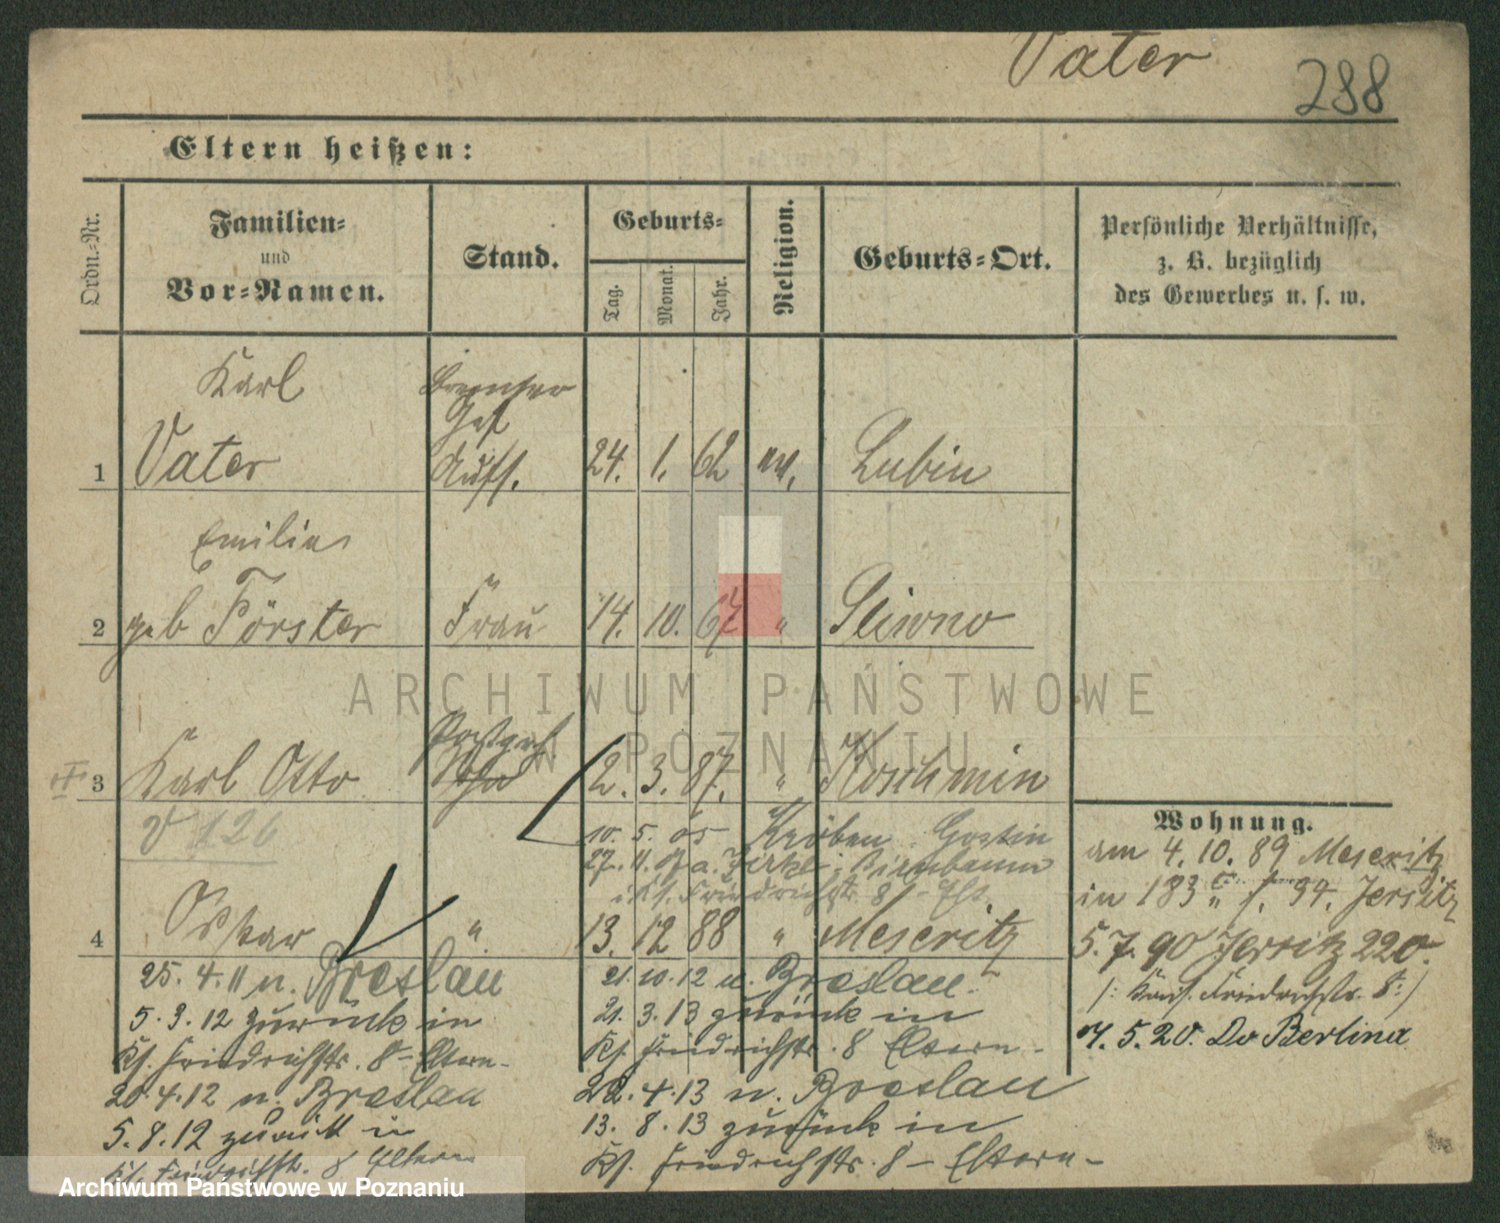 Vater
288
Eltern heißen:
Ordn.-Nr.
Familien-
und
Vor-Namen.
Stand.
Geburts-
Tag.
Monat.
Jahr.
Religion.
Geburts-Ort.
Persönliche Verhältnisse,
z. B. bezüglich
des Gewerbes u. s. w.
Karl
1 Vater Auff. 24. 1. 62 ev. Lubin
Emilie
2 geb Förster Frau 14. 10. 67 " Sliwno
3 Karl Otto 2. 3. 87. " Koschmin
V 126
10. 5. 05 Kröben Gostin
27. Birnbaum
Friedrichstr. 8
4 Oskar " 13. 12 88 " Meseritz
Wohnung.
am 4. 10. 89 Meseritz
in 183 34. Jersitz
5. 7. 90 Jersitz 220.
/: Kais. Friedrichstr. 8 :/
7. 5. 20. Berlina
25. 4. 11 n. Breslau
5. 3. 12 zurück in
Ks. Friedrichstr. 8 - Eltern -
20. 4. 12 n. Breslau
5. 8. 12 zurück in
Ks. Friedrichstr. 8 Eltern
21. 10. 12 n. Breslau -
21. 3. 13 zurück in
Ks. Friedrichstr. 8 Eltern -
22. 4. 13 n. Breslau
13. 8. 13 zurück in
Ks. Friedrichstr. 8 - Eltern -
ARCHIWUM PAŃSTWOWE
W POZNANIU
Archiwum Państwowe w Poznaniu